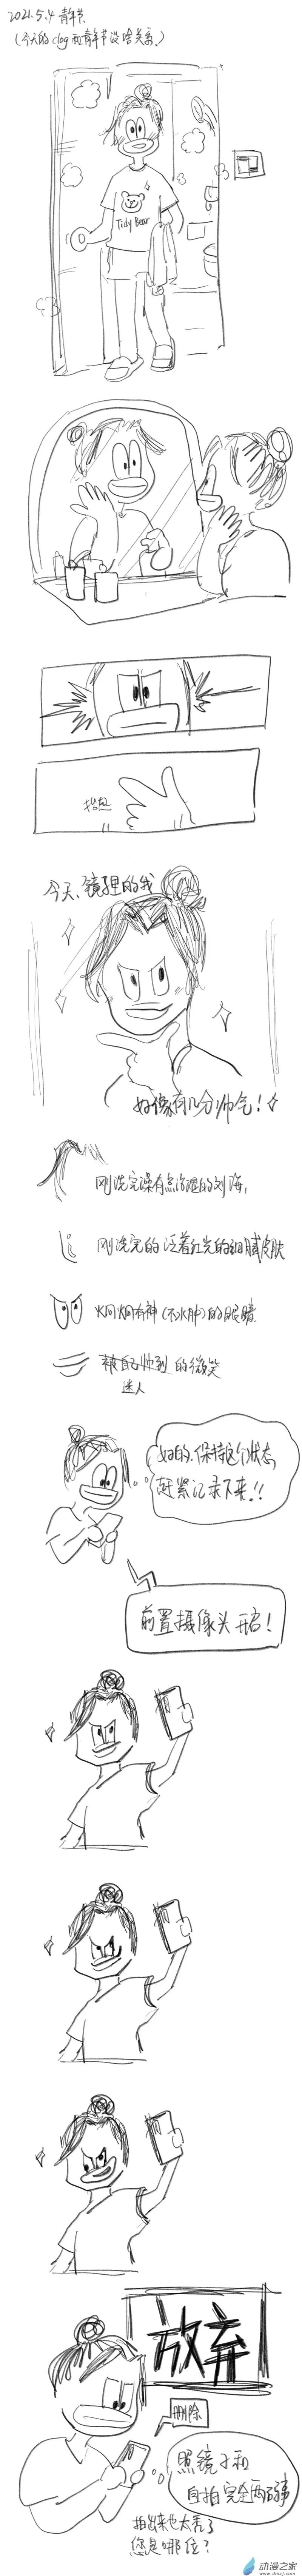 2021.5.4 青年节.
(今天的clog和青年节没啥关系.)
Tidy Bear
抬起
今天、镜子里的我
好像有几分帅气!
刚洗完澡有点湿漉的刘海,
刚洗完的泛着红光的细腻皮肤
炯炯有神(不水肿)的眼睛.
被自己帅到的微笑
迷人
好的.保持这个状态,
赶紧记录下来!!
前置摄像头开启!
放弃
删除
照镜子和
自拍完全两码事
拍出来也太丢了
您是哪位?
动漫之家
www.dmzj.com